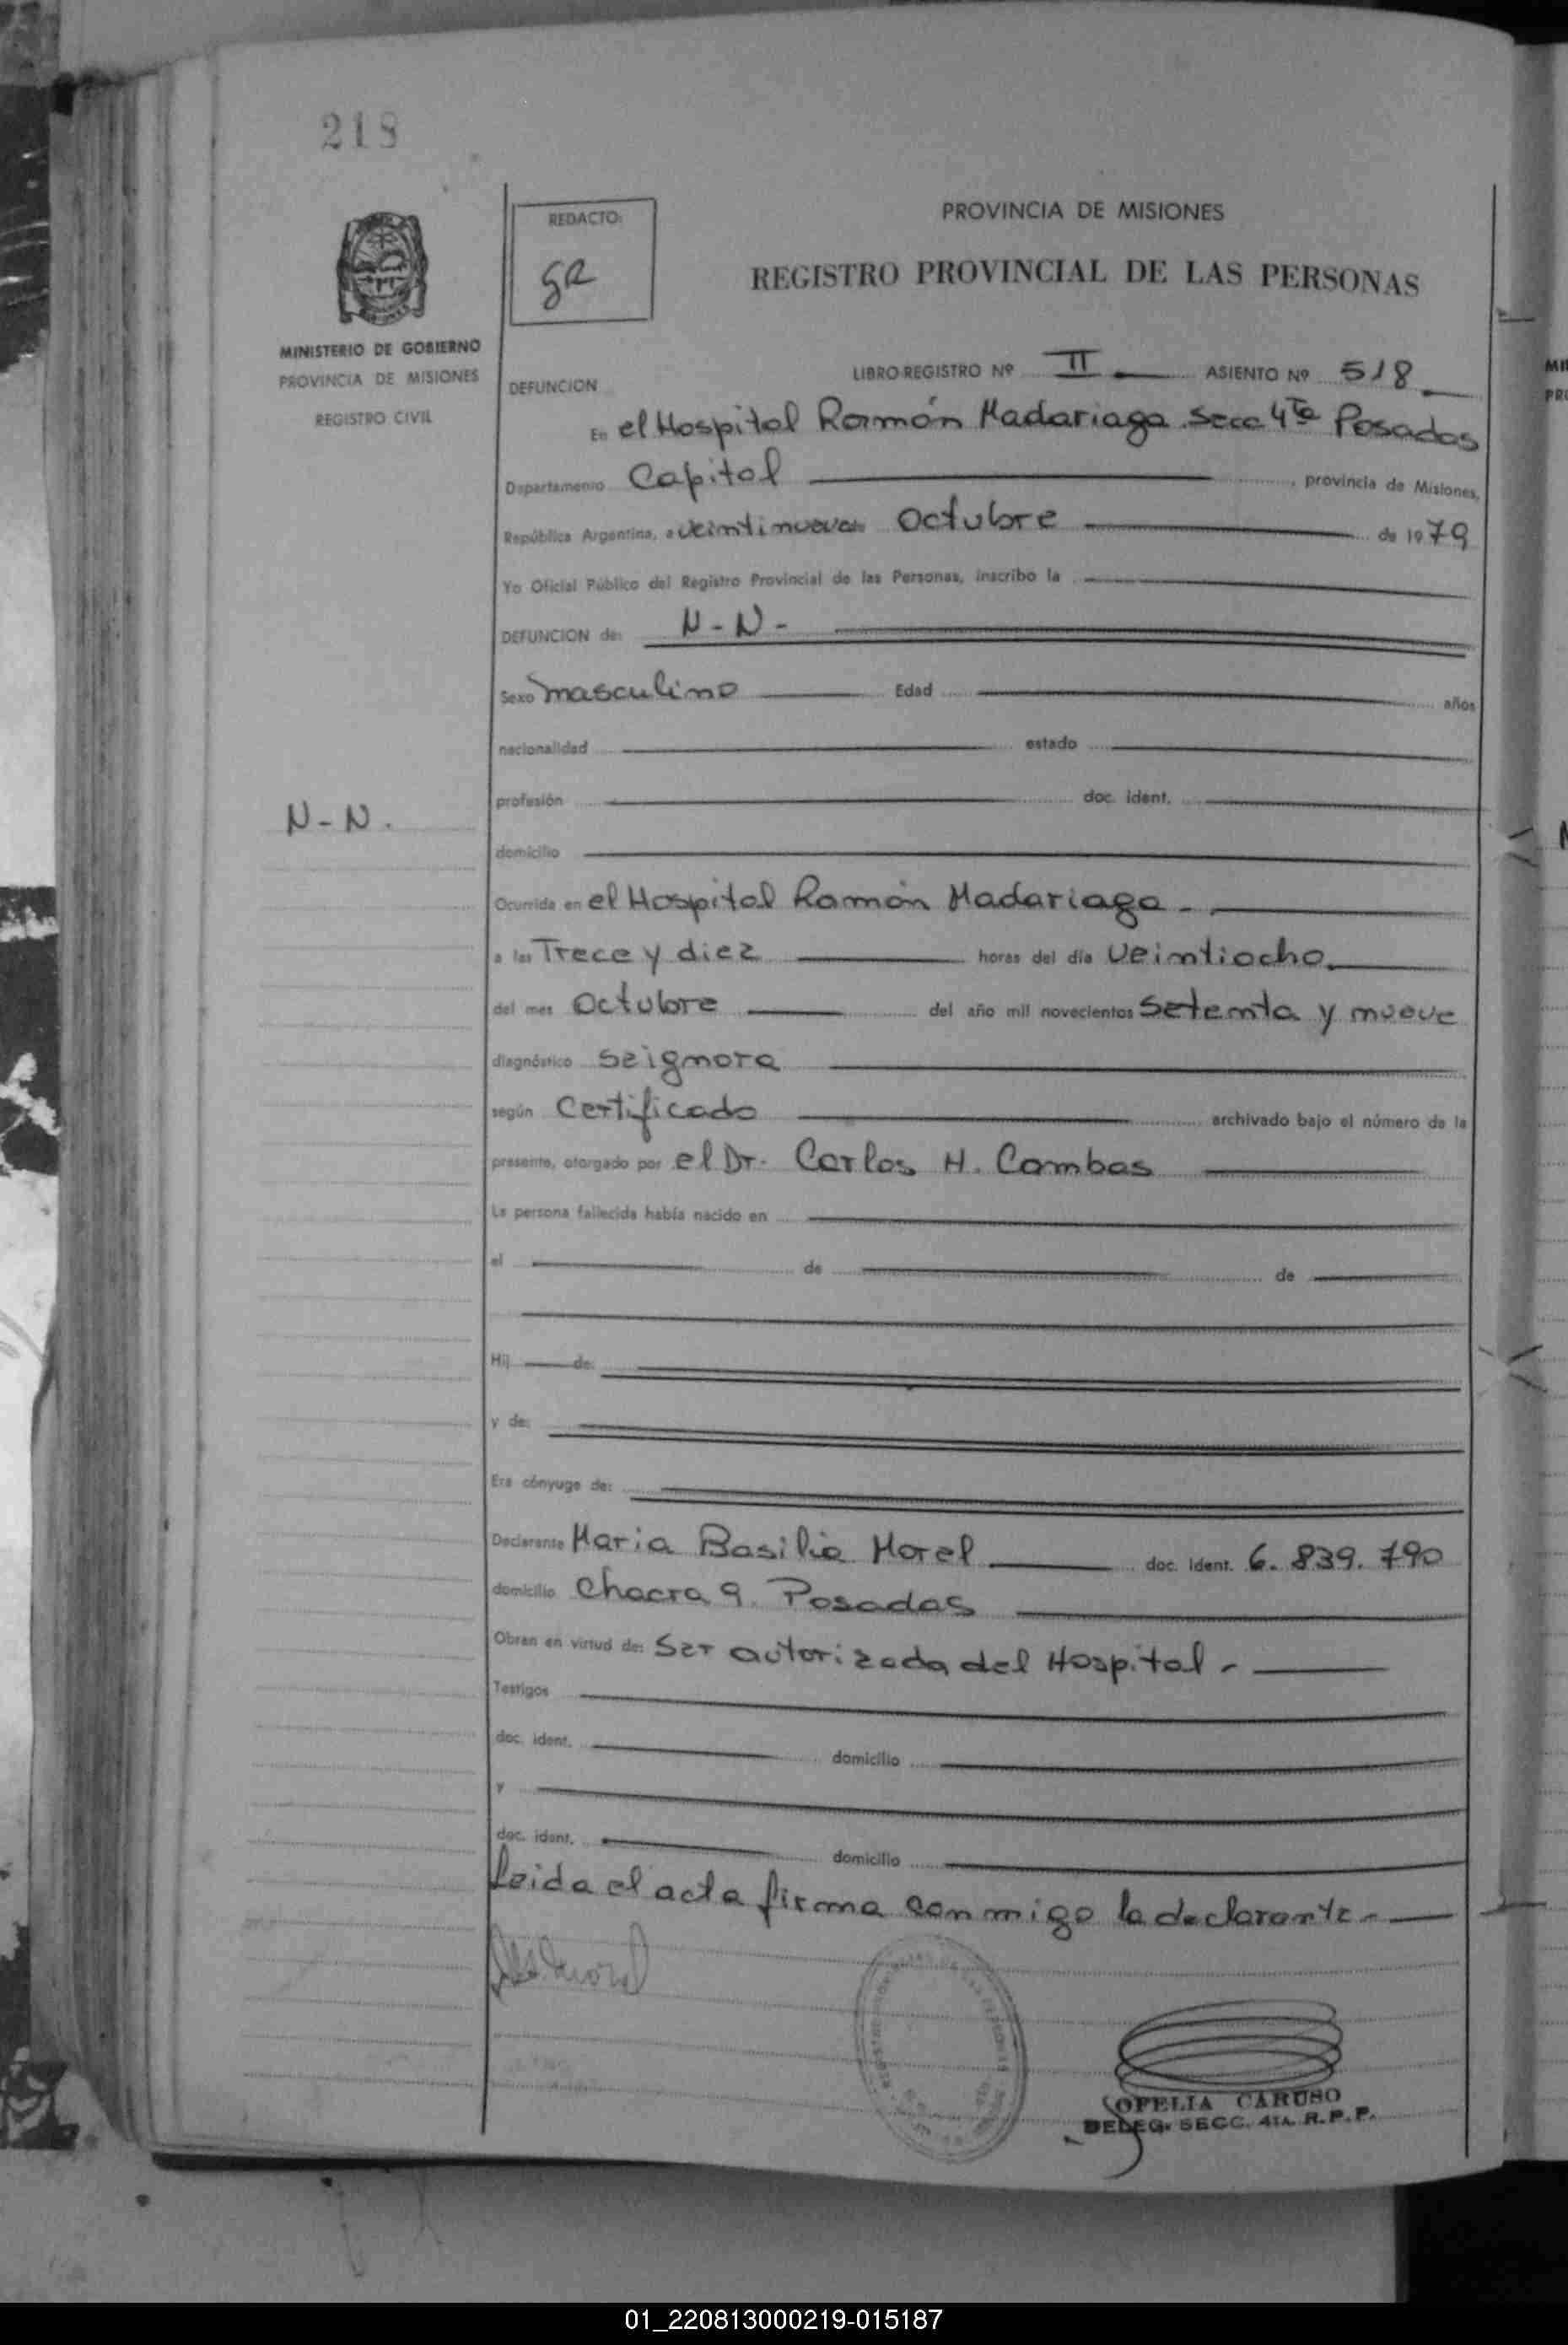 218
REDACTO:
gR
PROVINCIA DE MISIONES
REGISTRO PROVINCIAL DE LAS PERSONAS
MINISTERIO DE GOBIERNO
PROVINCIA DE MISIONES
REGISTRO CIVIL
LIBRO-REGISTRO Nº II ASIENTO Nº 518
DEFUNCION
En el Hospital Ramón Madariaga Secc 4ta Posadas
Departamento Capital, provincia de Misiones,
República Argentina, a veintinueve de Octubre de 1979
Yo Oficial Público del Registro Provincial de las Personas, inscribo la
DEFUNCION de: N-N-
Sexo masculino Edad años
nacionalidad estado
profesión doc. ident.
N-N.
domicilio
Ocurrida en el Hospital Ramón Madariaga-
a las Trece y diez horas del día veintiocho
del mes Octubre del año mil novecientos setenta y nueve
diagnóstico seignora
según Certificado archivado bajo el número de la
presente, otorgado por el Dr. Carlos H. Cambas
La persona fallecida había nacido en
el de de
Hij de:
y de:
Era cónyuge de:
Declarante Maria Basilia Morel doc. ident. 6.839.790
domicilio Chacra 9. Posadas
Obran en virtud de: Ser autorizada del Hospital-
Testigos
doc. ident. domicilio
y
doc. ident. domicilio
Leida el acta firma conmigo la declarante-
OFELIA CARUSO
DELEG. SECC. 4ta. R.P.P.
01_220813000219-015187